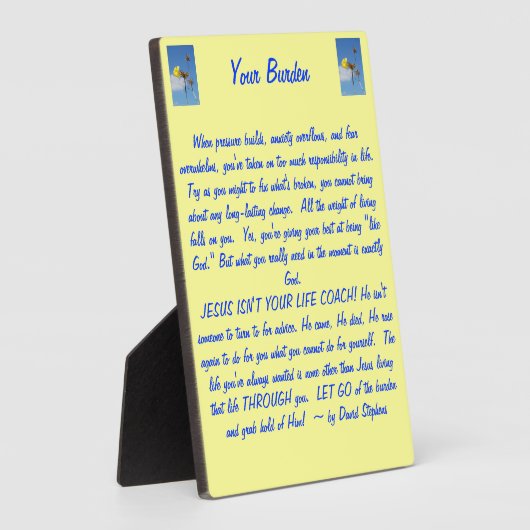 Your Burden
When pressure builds, anxiety overflows, and fear
overwhelms, you've taken on too much responsibility in life.
Try as you might to fix what's broken, you cannot bring
about any long-lasting change. All the weight of living
falls on you. Yes, you're giving your best at being "like
God." But what you really need in the moment is exactly
God.
JESUS ISN'T YOUR LIFE COACH! He isn't
someone to turn to for advice. He came, He died, He rose
again to do for you what you cannot do for yourself. The
life you've always wanted is none other than Jesus living
that life THROUGH you. LET GO of the burden
and grab hold of Him! ~ by David Stephens